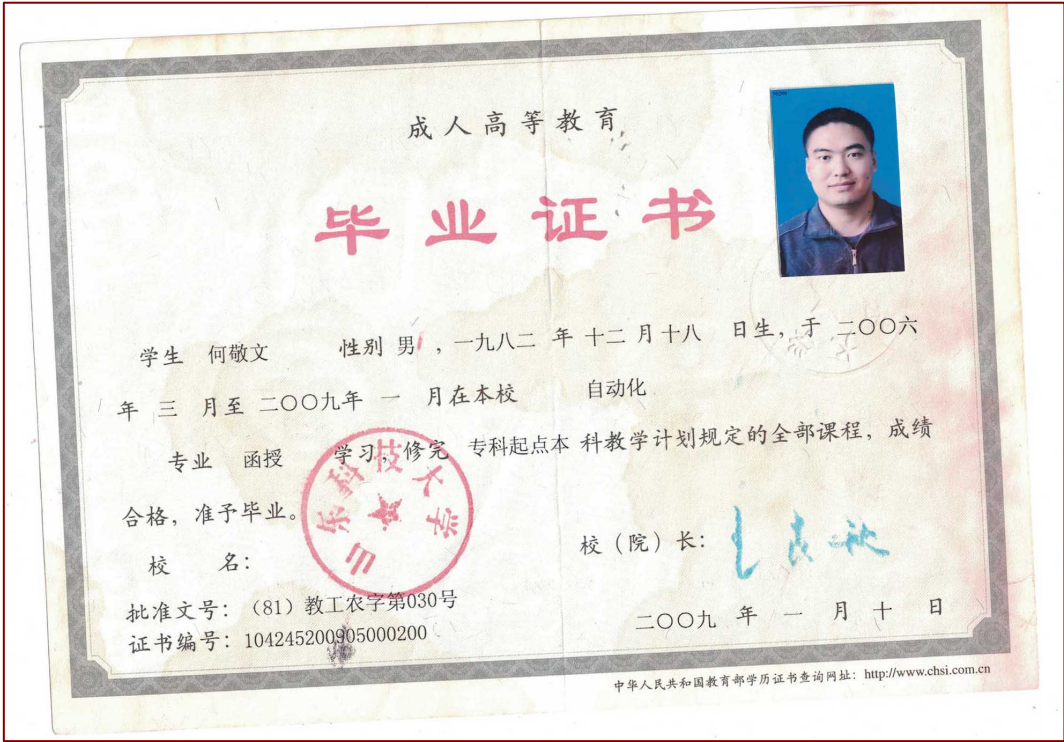 成人高等教育
毕业证书
学生 何敬文 性别 男 ,一九八二 年 十二 月十八 日生,于 二〇〇六
年 三 月至 二〇〇九年 一 月在本校 自动化
专业 函授 学习,修完 专科起点本 科教学计划规定的全部课程,成绩
合格,准予毕业。
山东科技大学
校 名:
校(院)长:
批准文号:(81)教工农字第030号
二〇〇九 年 一 月 十 日
证书编号:104245200905000200
中华人民共和国教育部学历证书查询网址:http://www.chsi.com.cn